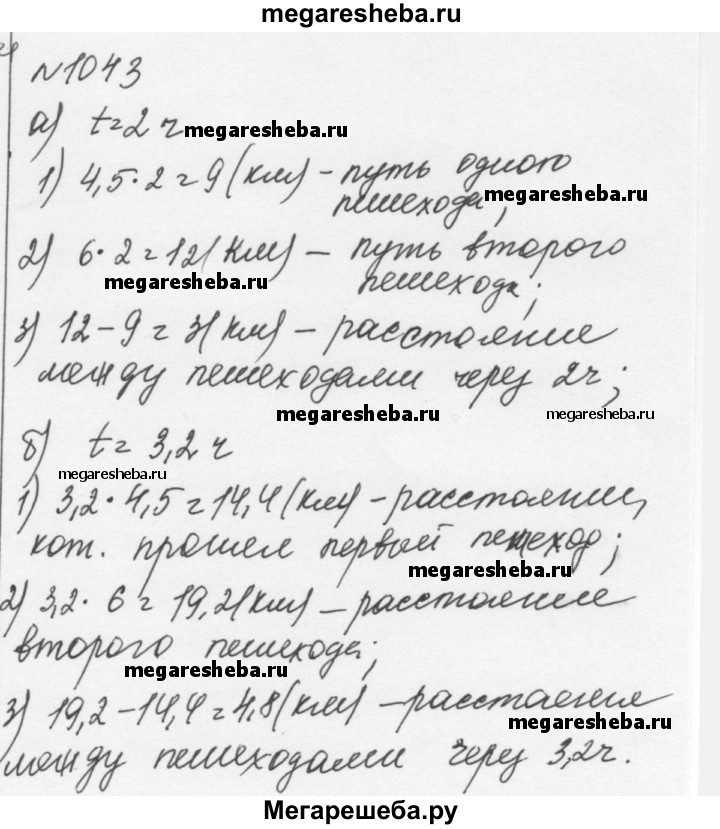 megaresheba.ru
№1043
а) t=2 ч megaresheba.ru
1) 4,5·2=9(км) - путь одного
megaresheba.ru
пешехода;
2) 6·2=12(км) - путь второго
megaresheba.ru пешехода;
3) 12-9=3(км) - расстояние
между пешеходами через 2ч;
megaresheba.ru megaresheba.ru
б) t=3,2 ч
megaresheba.ru
1) 3,2·4,5=14,4(км) - расстояние,
кот. прошел первый пешеход;
megaresheba.ru
2) 3,2·6=19,2(км) - расстояние
второго пешехода;
megaresheba.ru
3) 19,2-14,4=4,8(км) - расстаения
megaresheba.ru
между пешеходами через 3,2ч.
Мегарешеба.ру